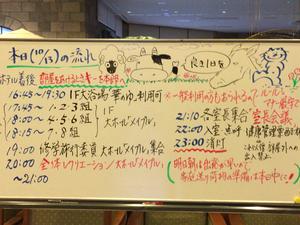 本日(10/13)の流れ
良き1日を
ホテル着後 部屋をあけるときキーを本部へ
16:45~19:30 1F大浴場「華のゆ」利用可
※一般利用の方もあるのでルール
マナー厳守で
17:45~ 1・2・3組
18:00~ 4・5・6組
18:15~ 7・8組
1F
大ホール「メイプル」
19:00 修学旅行委員 大ホール「メイプル」集合
20:00 全体レクリエーション 大ホール「メイプル」
~21:00
21:10 各室長集合 室長会議
22:00 入室・点呼 健康管理
これ以降部屋外への
出入禁止
23:00 消灯
明日朝は出発が早いので
宅配送り荷物の準備は本日中に!